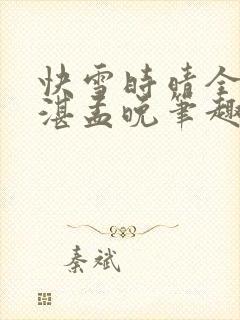 快雪時晴全
湛孟晚筆趣
秦斌